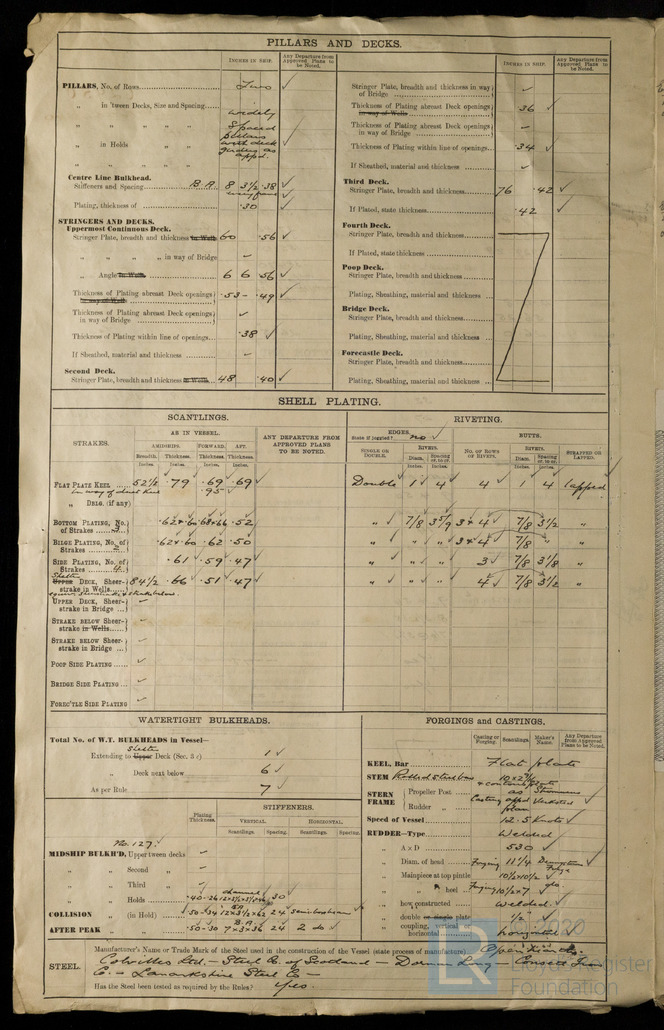 PILLARS AND DECKS.
INCHES IN SHIP.
Any Departure from Approved Plans to be Noted.
PILLARS, No. of Rows Two ✓
„ in 'tween Decks, Size and Spacing widely
„ „ „ „ spaced
„ in Holds „ pillars with deck
„ „ „ girders as appd.
Centre Line Bulkhead.
Stiffeners and Spacing B.A. 8 3½ .38 ✓
every frame
Plating, thickness of .30 ✓
STRINGERS AND DECKS.
Uppermost Continuous Deck.
Stringer Plate, breadth and thickness in Wells 60 .56 ✓
„ „ „ „ in way of Bridge –
„ Angle in Wells 6 6 .56 ✓
Thickness of Plating abreast Deck openings in way of Wells .53 - .49 ✓
Thickness of Plating abreast Deck openings in way of Bridge ✓
Thickness of Plating within line of openings .38 ✓
If Sheathed, material and thickness –
Second Deck.
Stringer Plate, breadth and thickness in Wells 48 .40 ✓
INCHES IN SHIP.
Any Departure from Approved Plans to be Noted.
Stringer Plate, breadth and thickness in way of Bridge ✓
Thickness of Plating abreast Deck openings in way of Wells .36 ✓
Thickness of Plating abreast Deck openings in way of Bridge –
Thickness of Plating within line of openings .34 ✓
If Sheathed, material and thickness ✓
Third Deck.
Stringer Plate, breadth and thickness 76 .42 ✓
If Plated, state thickness .42 ✓
Fourth Deck.
Stringer Plate, breadth and thickness
If Plated, state thickness
Poop Deck.
Stringer Plate, breadth and thickness
Plating, Sheathing, material and thickness
Bridge Deck.
Stringer Plate, breadth and thickness
Plating, Sheathing, material and thickness
Forecastle Deck.
Stringer Plate, breadth and thickness
Plating, Sheathing, material and thickness
SHELL PLATING.
SCANTLINGS.
RIVETING.
STRAKES.
AS IN VESSEL.
AMIDSHIPS. FORWARD. AFT.
Breadth. Thickness. Thickness. Thickness.
Inches. Inches. Inches. Inches.
ANY DEPARTURE FROM APPROVED PLANS TO BE NOTED.
EDGES.
State if joggled? no ✓
SINGLE OR DOUBLE.
RIVETS.
Diam. Spacing cr. to cr.
Inches. Inches.
BUTTS.
NO. OF ROWS OF RIVETS.
RIVETS.
Diam. Spacing cr. to cr.
Inches. Inches.
STRAPPED OR LAPPED.
FLAT PLATE KEEL 52½ .79 .69 .69 Double 1 4 4 1 4 lapped
in way of duct keel .95 ✓
„ DBLG. (if any)
BOTTOM PLATING, No. of Strakes 3 .62 .52 ✓ „ 7/8 3 & 4 7/8 3½ „
BILGE PLATING, No. of Strakes 2 .62 & .60 .62 .50 „ „ „ 3 & 4 7/8 „ „
SIDE PLATING, No. of Strakes 4 .61 .59 .47 „ „ „ 3 7/8 3 1/8 „
Shelter
UPPER DECK, Sheerstrake in Wells 84½ .66 .51 .47 „ „ „ 4 7/8 3½ „
UPPER DECK, Sheerstrake in Bridge ✓
STRAKE BELOW Sheerstrake in Wells ✓
STRAKE BELOW Sheerstrake in Bridge ✓
POOP SIDE PLATING ✓
BRIDGE SIDE PLATING ✓
FOREC'TLE SIDE PLATING ✓
WATERTIGHT BULKHEADS.
Total No. of W.T. BULKHEADS in Vessel—
Shelter
Extending to Upper Deck (Sec. 3 c) 1 ✓
„ Deck next below 6 ✓
As per Rule 7 ✓
Plating Thickness.
STIFFENERS.
VERTICAL. HORIZONTAL.
Scantlings. Spacing. Scantlings. Spacing.
No. 127.
MIDSHIP BULKH'D, Upper tween decks –
„ „ Second „ –
„ „ Third „ –
channel
„ „ Holds .40-.26 30
COLLISION „ (in Hold) .50-.34 12 × 3½ × .62 24
B.A.
AFTER PEAK „ „ .50-.30 7 × 3 × .36 24 2 do ✓
FORGINGS AND CASTINGS.
Casting or Forging.
Scantlings.
Maker's Name.
Any Departure from Approved Plans to be Noted.
KEEL, Bar Flat plate
STEM Rolled steel bar
STERN FRAME
Propeller Post as
Rudder „ Casting appd plan
Speed of Vessel 12.5 Knots
RUDDER—Type Welded
„ A x D 530 ✓
„ Diam. of head Forging 11¼
„ Mainpiece at top pintle 10½ × 10½
„ „ heel Forging 10½ × 7 ✓ do.
„ how constructed welded ✓
„ double or single plate ½" ✓
„ coupling, vertical or horizontal horizontal ✓
STEEL.
Manufacturer's Name or Trade Mark of the Steel used in the construction of the Vessel (state process of manufacture) Open Hearth.
Colvilles Ltd. – Steel Co. of Scotland – Dorman Long – Consett Iron
Co. – Lanarkshire Steel Co –
Has the Steel been tested as required by the Rules? yes.
© 2020
Lloyd's Register
Foundation